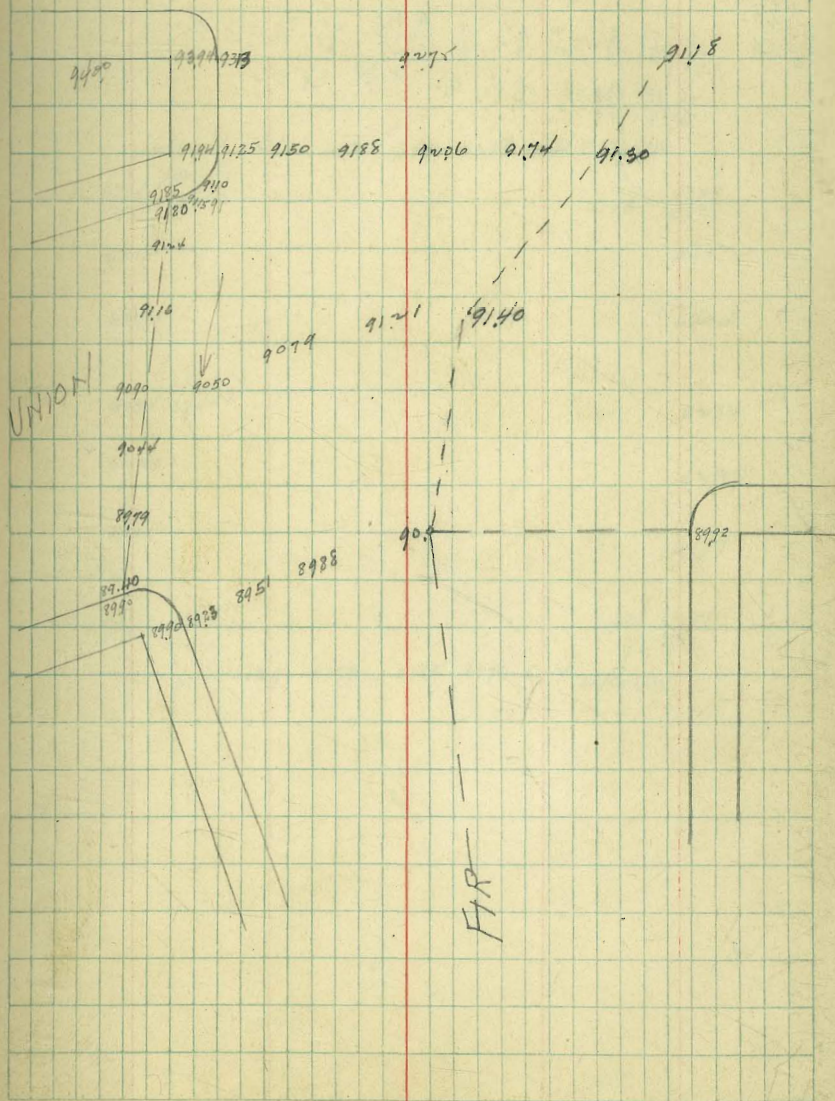 9400 9394 9313 9275 91.18
9194 9125 9150 9188 9206 9174 91.30
9185 9110
9180
9124
91.16 9121 91.40
9079
UNION 9090 9050
9044
8979 8992
89.40 8951 8988
8990
8990 8923
FIR